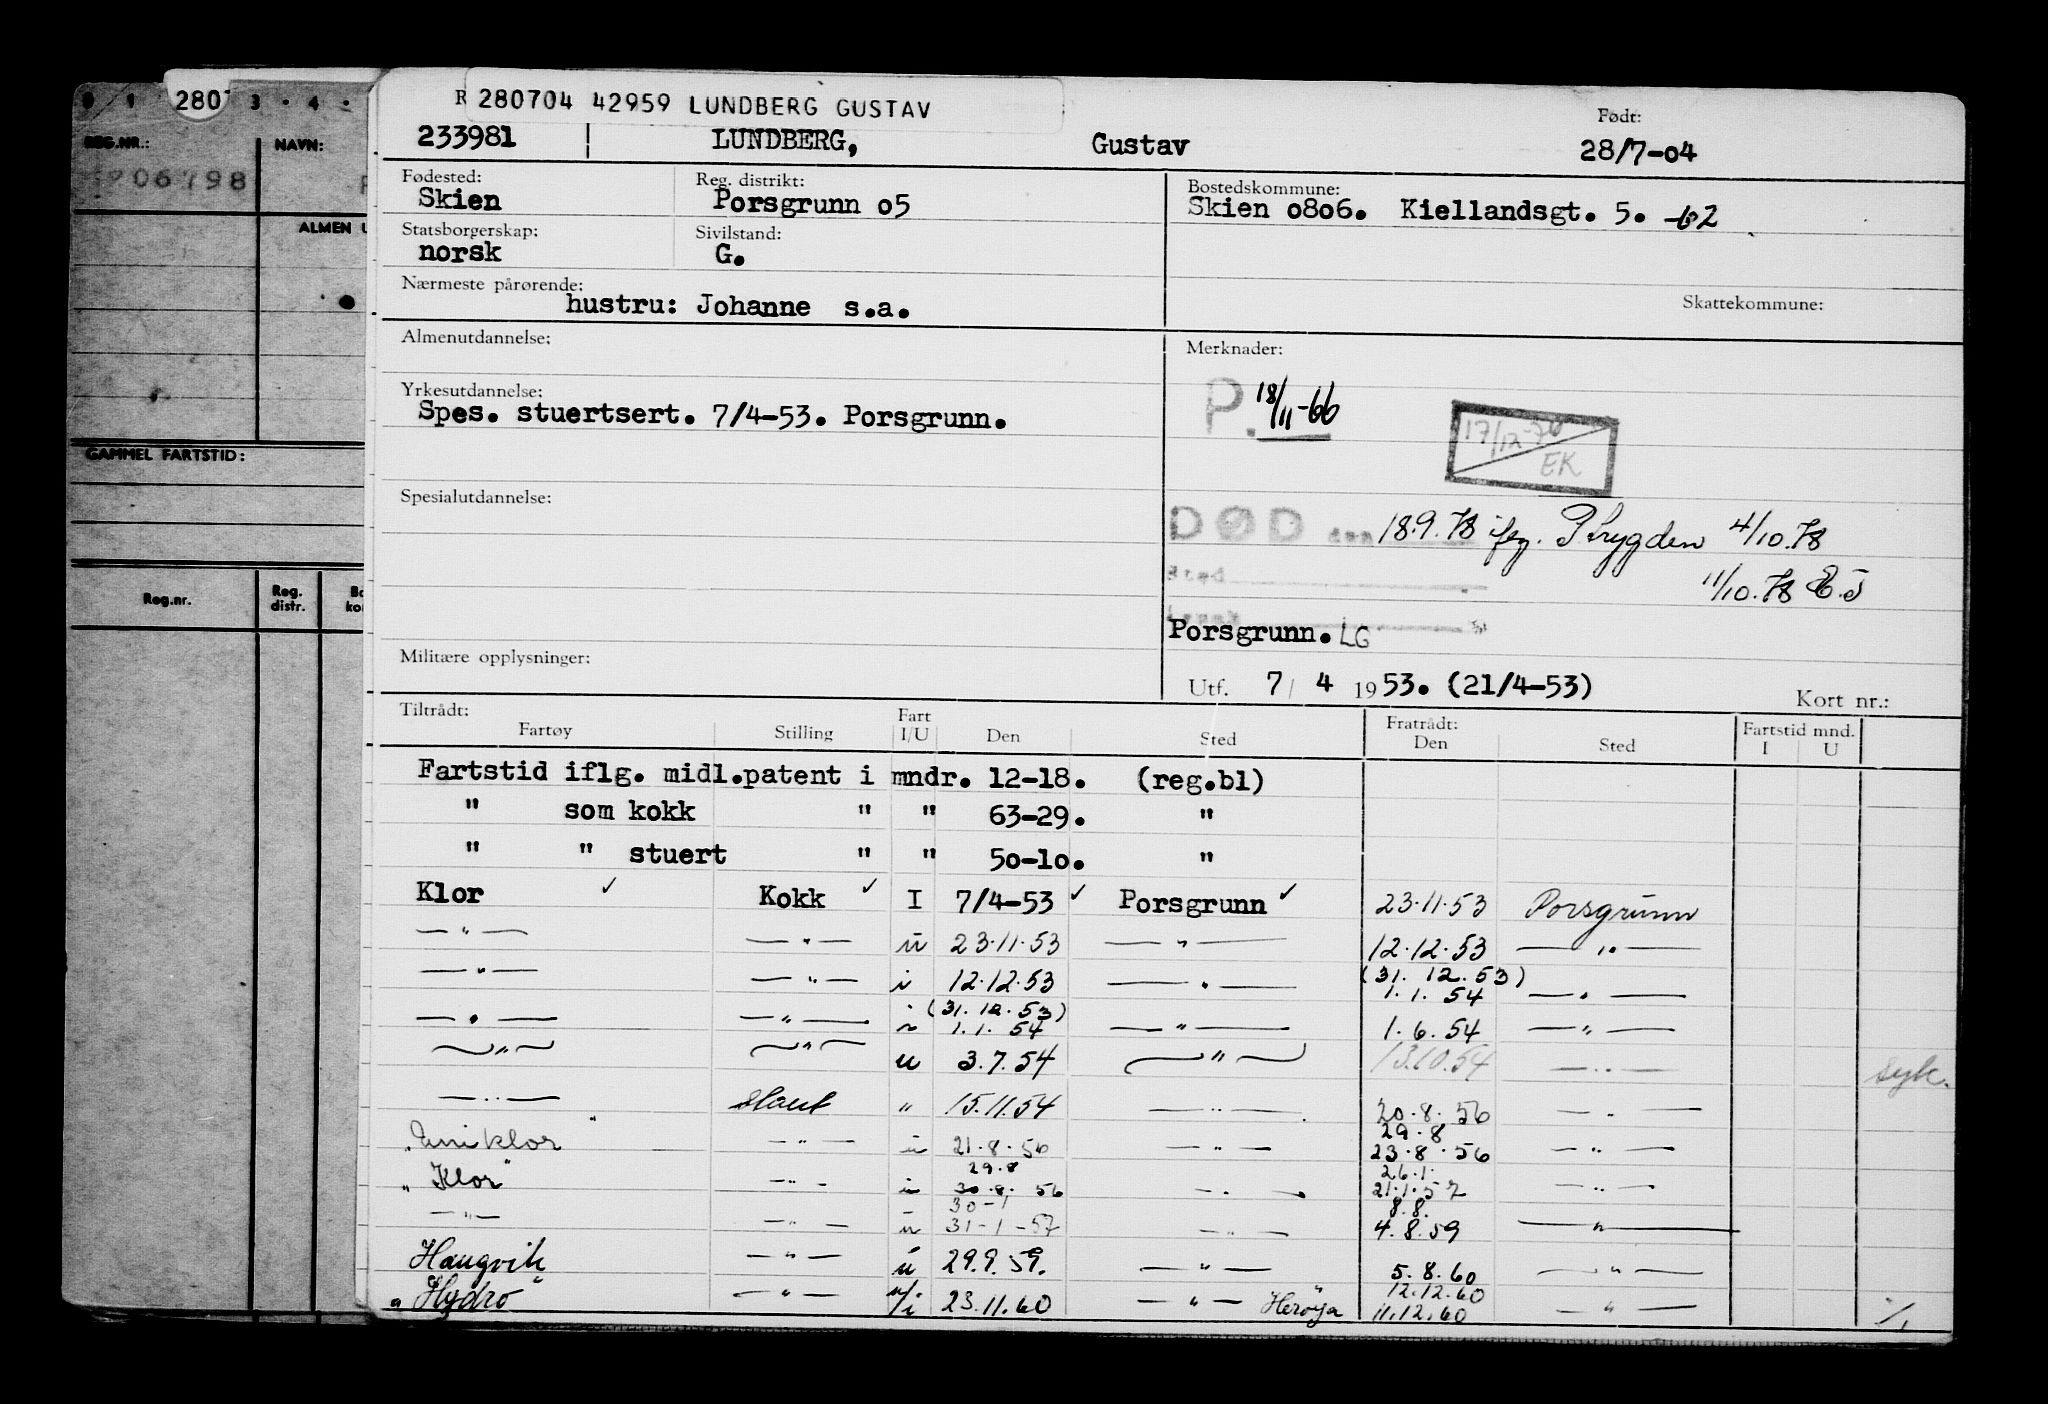 280704 42959 LUNDBERG GUSTAV
Født:
233981 LUNDBERG, Gustav 28/7-04
Fødested: Reg. distrikt: Bostedskommune:
Skien Porsgrunn 05 Skien 0806. Kiellandsgt. 5. -62
Statsborgerskap: Sivilstand:
norsk G.
Nærmeste pårørende: Skattekommune:
hustru: Johanne s.a.
Almenutdannelse: Merknader:
P. 18/11-66
Yrkesutdannelse:
Spes. stuertsert. 7/4-53. Porsgrunn.
17/12-70
EK
Spesialutdannelse:
DØD den 18.9.78 iflg. P Trygden 4/10.78
Sted
11/10.78 E.J
Porsgrunn. LG
Militære opplysninger:
Utf. 7/ 4 1953. (21/4-53) Kort nr.:
Tiltrådt: Fratrådt:
Fartøy Stilling Fart I/U Den Sted Den Sted Fartstid mnd. I U
Fartstid iflg. midl.patent i mndr. 12-18. (reg.bl)
" som kokk " " 63-29. "
" " stuert " " 50-10. "
Klor ✓ Kokk ✓ I 7/4-53 ✓ Porsgrunn ✓ 23.11.53 Porsgrunn
—"— —"— u 23.11.53 —"— 12.12.53 —"—
—"— —"— i 12.12.53 —"— (31.12.53) 1.1.54 —"—
—"— —"— (31.12.53) 1.1.54 —"— 1.6.54 —"—
—"— —"— u 3.7.54 —"— 13.10.54 —"— syk.
—"— " 15.11.54 —"— 20.8.56 —"—
"Uniklor" —"— 21.8.56 —"— 29.8 23.8.56 —"—
"Klor" —"— 29.8 30.8.56 —"— 26.1 21.1.57 —"—
—"— —"— u 30-1 31-1-57 —"— 8.8. 4.8.59 —"—
Haugvik —"— u 29.9.59. —"— 5.8.60 —"—
"Hydro" —"— u/i 23.11.60 —"— Herøya 12.12.60 11.12.60 —"—
280 3 · 4 ·
REG.NR.: NAVN:
06798
ALMEN U
GAMMEL FARTSTID:
Reg.nr. Reg. distr.